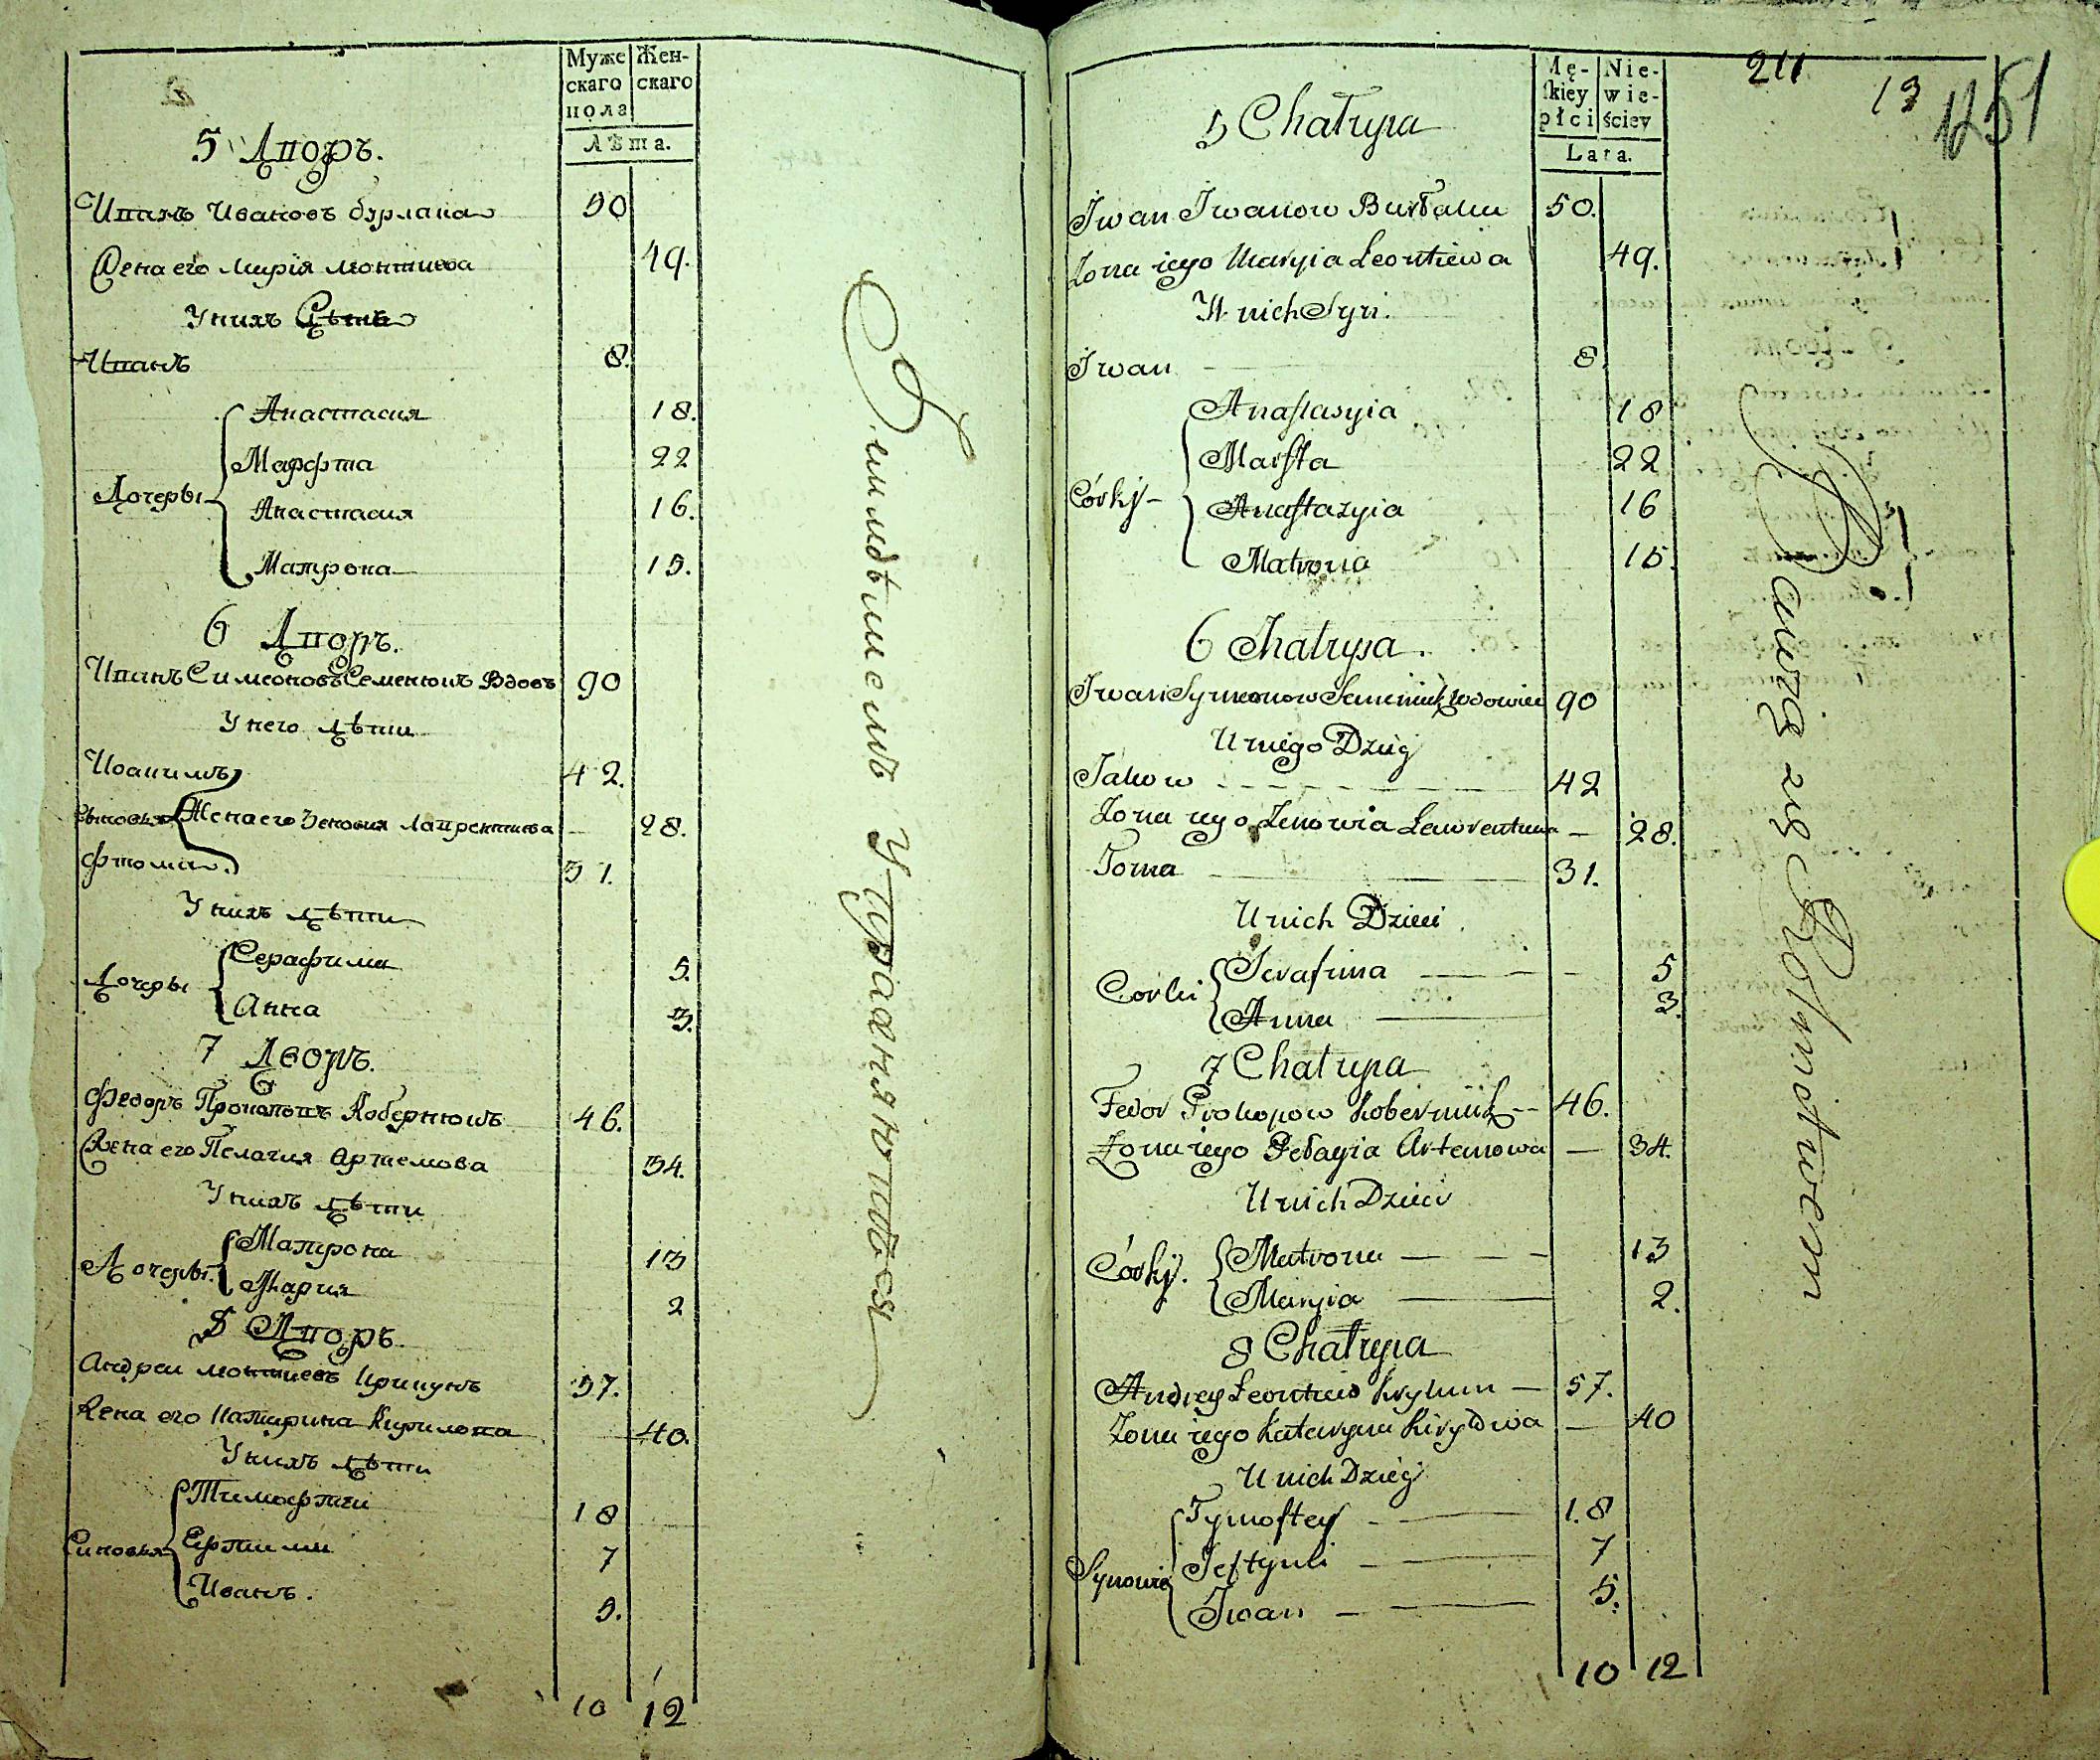 Муже
скаго
пола
Жен-
скаго
Лѣта.
5 Дворъ.
Иванъ Ивановъ бурлака 50
Жена его Марія леонтиева 49.
У нихъ Дѣти
Иванъ 8.
Дочеры
Анастасия 18.
Марфта 22
Анастасия 16.
Матрона 15.
6 Дворъ.
Иванъ Симеоновъ Семенюкъ Вдовъ 90
У него дѣти
Иоакимъ 42.
Сыновья Жена его Зеновия Лаврентиева 28.
Фтома. 31.
У нихъ дѣти
Дочеры
Серафима 5.
Анна 3.
7 Дворъ.
Федоръ Прокоповъ Кобернюкъ 46.
Жена его Пелагия Артемова 34.
У нихъ дѣти
Дочеры.
Матрона 13
Мария 2
8 Дворъ.
Андреи леонтиевъ крикунъ 57.
Жена его Катирина Кирилова 40.
У нихъ дѣти
Синовья
Тимофтеи 18
Ефтими 7
Иванъ. 5.
10 12
Упражняются
Mę-
skiey
płci
Nie-
wie-
ściey
Lata.
211
13
451
5 Chałupa
Iwan Iwanow Burłaku 50.
Żona iego Maryia Leontiewa 49.
U nich Syn.
Iwan 8
Córkj
Anastasyia 18
Marfta 22
Anastazyia 16
Matrona 15.
6 Chałupa.
Iwan Symeonow Semeniuk Wdowiec 90
U niego Dziecj
Jakow 42
Żona iego Zenowia Lawrentiewa 28.
Toma 31.
U nich Dzieci.
Corki
Serafima 5
Anna 3.
7 Chałupa
Fedor Prokopow Koberniuk 46.
Żona iego Pełagia Artemowa 34.
U nich Dzieci
Córkj.
Matrona 13
Maryia 2.
8 Chałupa
Andrey Leontiew Krykun 57.
Żona iego Kataryna Kiryłowa 40
U nich Dziecj
Synowie
Tymoftey 18
Jeftymi 7
Iwan 5.
10 12
Bawią się Rolnictwem